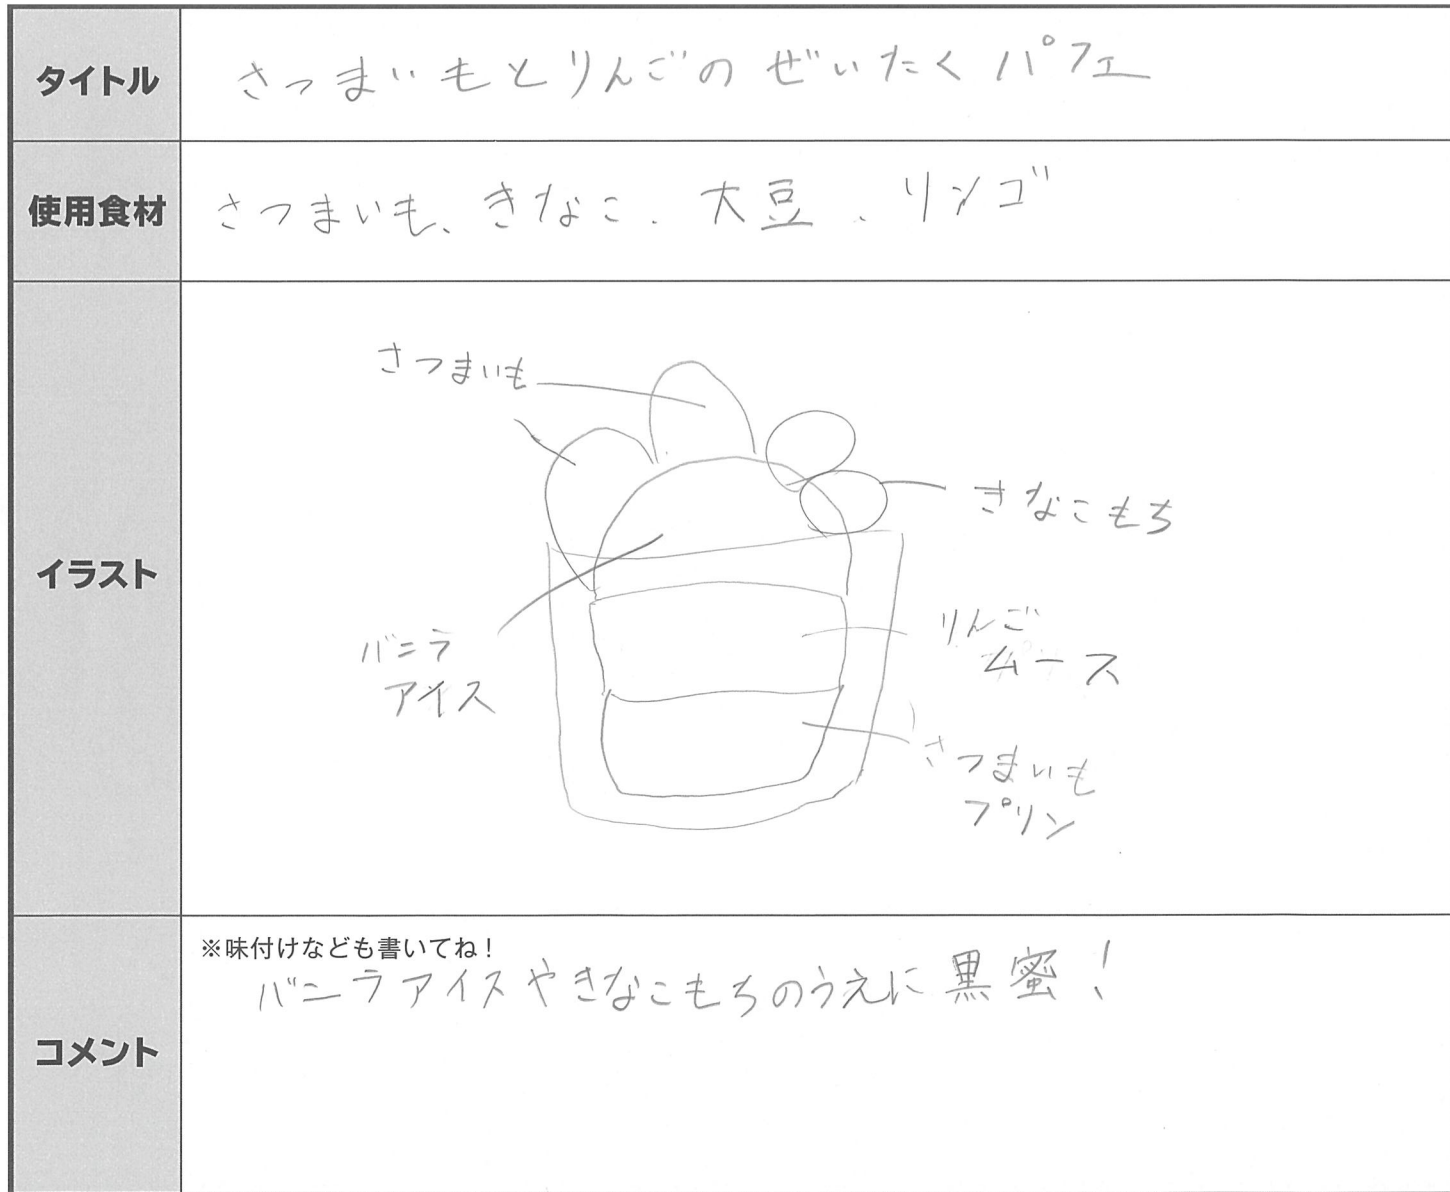 タイトル
さつまいもとりんごのぜいたくパフェ
使用食材
さつまいも、きなこ、大豆、リンゴ
イラスト
さつまいも
きなこもち
バニラ
アイス
りんご
ムース
さつまいも
プリン
コメント
※味付けなども書いてね！
バニラアイスやきなこもちのうえに黒蜜！